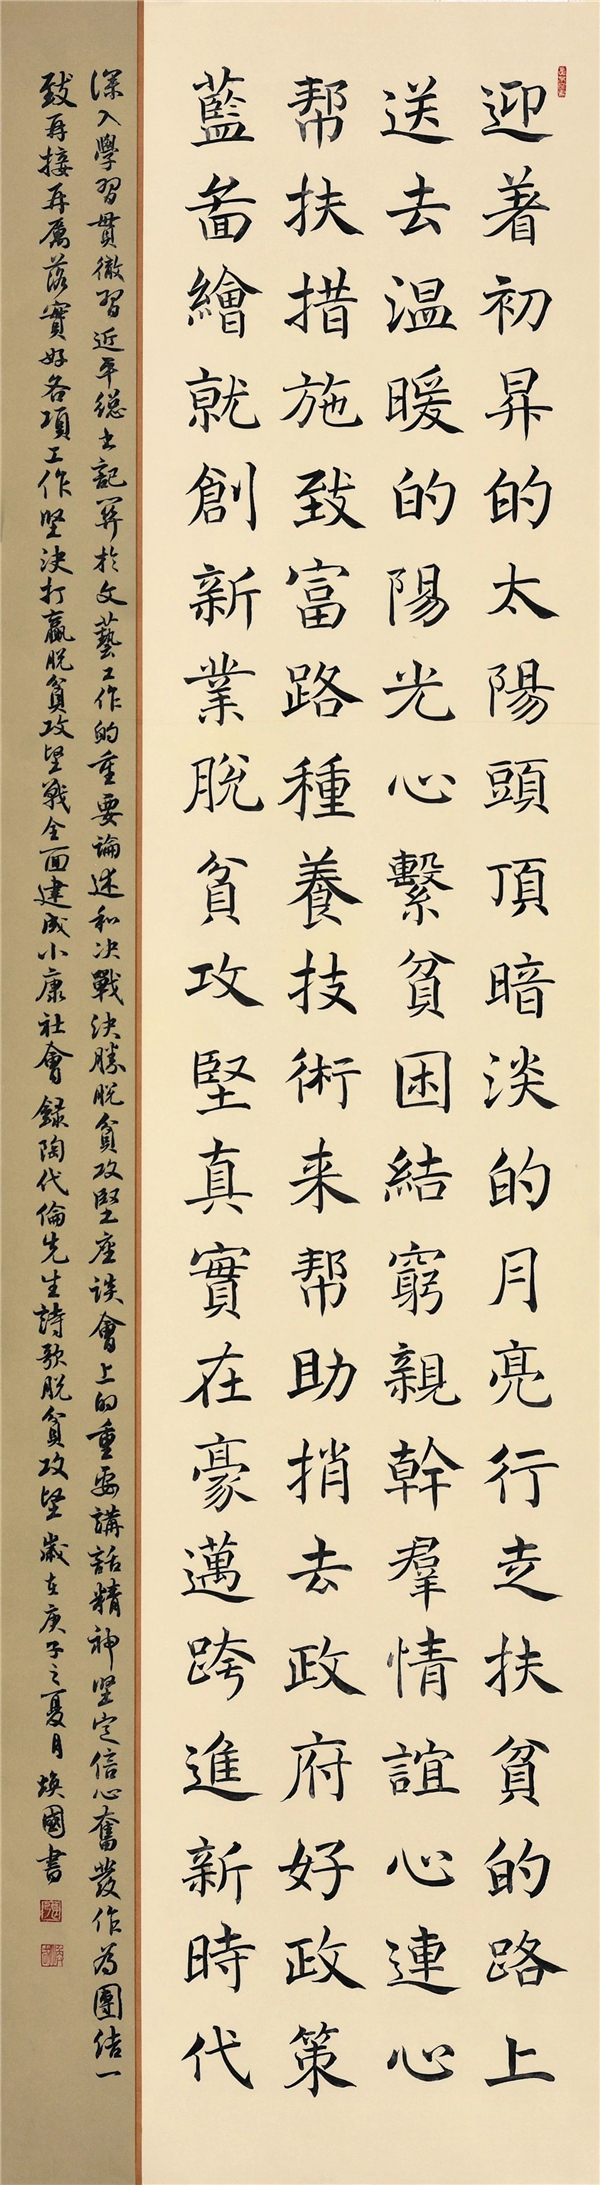 迎着初昇的太陽頭頂暗淡的月亮行走扶貧的路上
送去温暖的陽光心繫貧困結窮親幹羣情誼心連心
帮扶措施致富路種養技術来帮助捎去政府好政策
藍啚繪就創新業脱貧攻堅真實在豪邁跨進新時代
深入學習貫徹習近平總书記関於文藝工作的重要論述和决戰决勝脱貧攻堅座談會上的重要講話精神坚定信心奮發作為團结一
致再接再厲落實好各項工作堅决打贏脱貧攻坚戰全面建成小康社會 録陶代倫先生詩歌脱貧攻坚 歲在庚子之夏月 焕國書